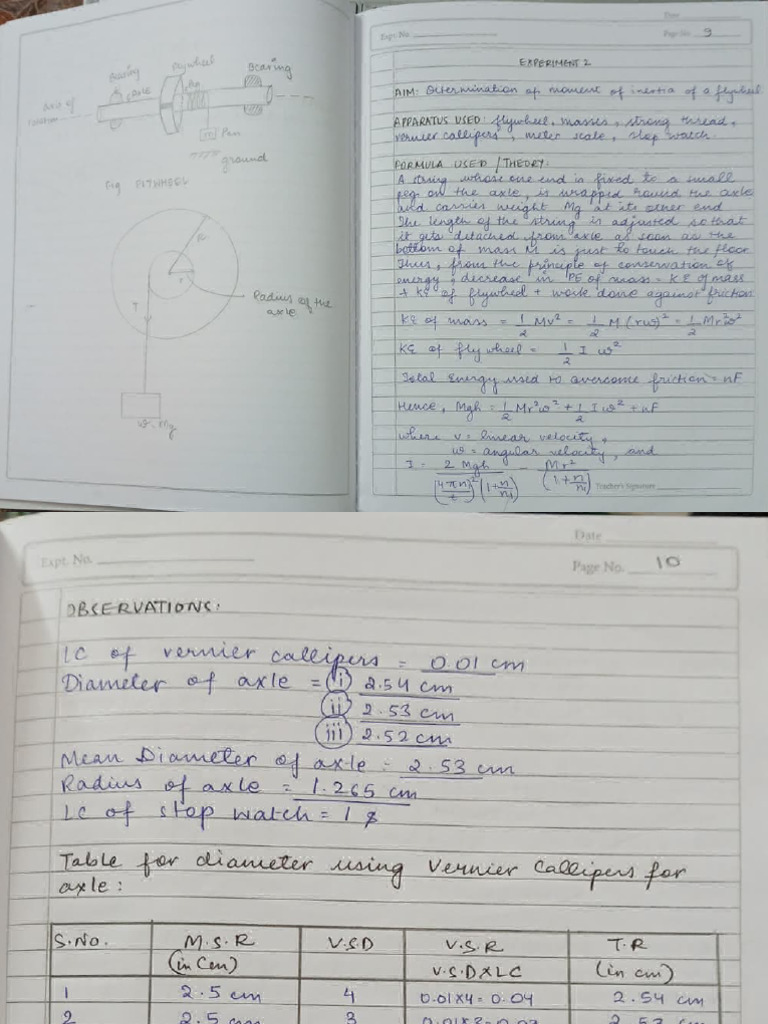 Bearing
Axle
flywheel
Peg
Bearing
Axis of
rotation
m
Pan
ground
Fig. FLYWHEEL
R
r
T
Radius of the
axle
w=Mg
Date
Expt. No.
Page No. 9
EXPERIMENT 2
AIM: Determination of moment of inertia of a flywheel
APPARATUS USED: flywheel, masses, strong thread,
vernier callipers, meter scale, stop watch.
FORMULA USED / THEORY:
A string whose one end is fixed to a small
peg on the axle, is wrapped round the axle
and carries weight Mg at its other end
The length of the string is adjusted so that
it gets detached from axle as soon as the
bottom of mass M is just to touch the floor.
Thus, from the principle of conservation of
energy, decrease in PE of mass = KE of mass
+ KE of flywheel + work done against friction
KE of mass = 1/2 Mv² = 1/2 M (rω)² = 1/2 Mr²ω²
KE of flywheel = 1/2 I ω²
Total Energy used to overcome friction = nF
Hence, Mgh = 1/2 Mr²ω² + 1/2 I ω² + nF
where v = linear velocity,
ω = angular velocity, and
I = 2 Mgh / (4πn₁/t)² (1+n/n₁) - Mr² / (1+n/n₁)
Teacher's Signature
Date
Expt. No.
Page No. 10
OBSERVATIONS:
LC of vernier callipers = 0.01 cm
Diameter of axle = (i) 2.54 cm
(ii) 2.53 cm
(iii) 2.52 cm
Mean Diameter of axle = 2.53 cm
Radius of axle = 1.265 cm
LC of stop watch = 1 s
Table for diameter using Vernier Callipers for
axle:
S.No. M.S.R V.S.D V.S.R T.R
(in cm) V.S.D×LC (in cm)
1 2.5 cm 4 0.01×4=0.04 2.54 cm
2 2.5 cm 3 0.01×3=0.03 2.53 cm